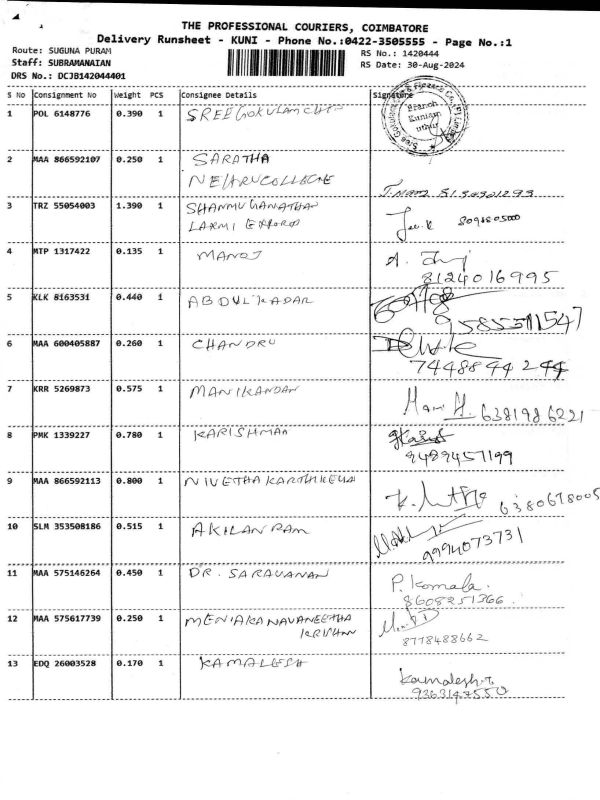 THE PROFESSIONAL COURIERS, COIMBATORE
Delivery Runsheet - KUNI - Phone No.:0422-3505555 - Page No.:1
Route: SUGUNA PURAM
RS No.: 1420444
Staff: SUBRAMANAIAN
RS Date: 30-Aug-2024
DRS No.: DCJB142044401
S No Consignment No Weight PCS Consignee Details Signature
1 POL 6148776 0.390 1 SREE GOKULAM CHIT
Branch
Kuniam
uthur
2 MAA 866592107 0.250 1 SARATHA
NEHRU COLLEGE
3 TRZ 55054003 1.390 1 SHANMUGANATHAN
LAXMI
4 MTP 1317422 0.135 1 MANOJ
8124016995
5 KLK 8163531 0.440 1 ABDUL KADAR
6 MAA 600405887 0.260 1 CHANDRU
7448844244
7 KRR 5269873 0.575 1 MANIKANDAN
Mani 6381986221
8 PMK 1339227 0.780 1 KARISHMAA
9489457199
9 MAA 866592113 0.800 1 NIVETHA KARTHIKEYAN
6380678005
10 SLM 353508186 0.515 1 AKILAN RAM
9994073731
11 MAA 575146264 0.450 1 DR. SARAVANAN
P. Komala.
8608251366
12 MAA 575617739 0.250 1 MENIAKANAVANEETHA
KRISHNN
8778488662
13 EDQ 26003528 0.170 1 KAMALESH
Kamalesh.T.
9363147550